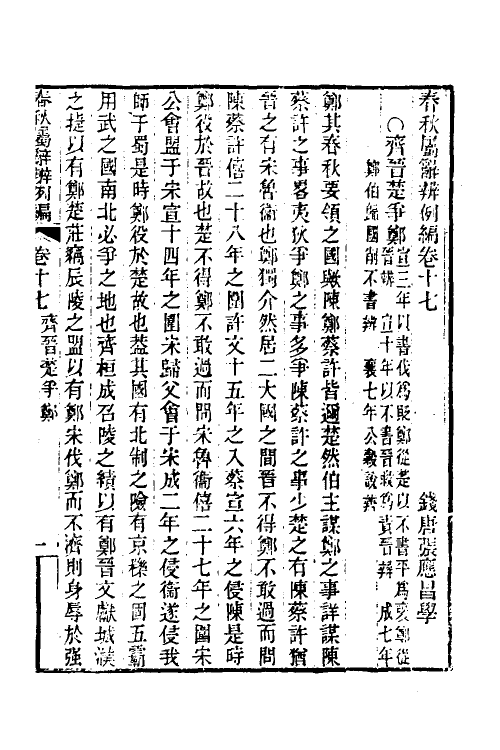 春秋屬辭辨例編卷十七
錢唐張應昌學
○齊晉楚爭鄭
宣三年以書伐爲貶鄭從楚以不書平爲褒鄭從
晉辨 宣十年以不書晉救爲責晉辨 成七年
鄭伯歸國削不書辨 襄七年公穀說辨
鄭其春秋要領之國歟陳鄭蔡許皆邇楚然伯主謀鄭之事詳謀陳
蔡許之事畧夷狄爭鄭之事多爭陳蔡許之事少楚之有陳蔡許猶
晉之有宋魯衞也鄭獨介然居二大國之間晉不得鄭不敢過而問
陳蔡許僖二十八年之圍許文十五年之入蔡宣六年之侵陳是時
鄭役於晉故也楚不得鄭不敢過而問宋魯衞僖二十七年之圍宋
公會盟于宋宣十四年之圍宋歸父會于宋成二年之侵衞遂侵我
師于蜀是時鄭役於楚故也蓋其國有北制之險有京櫟之固五霸
用武之國南北必爭之地也齊桓成召陵之績以有鄭晉文獻城濮
之捷以有鄭楚莊竊辰陵之盟以有鄭宋伐鄭而不濟則身辱於強
春秋屬辭辨例編
卷十七 齊晉楚爭鄭
一